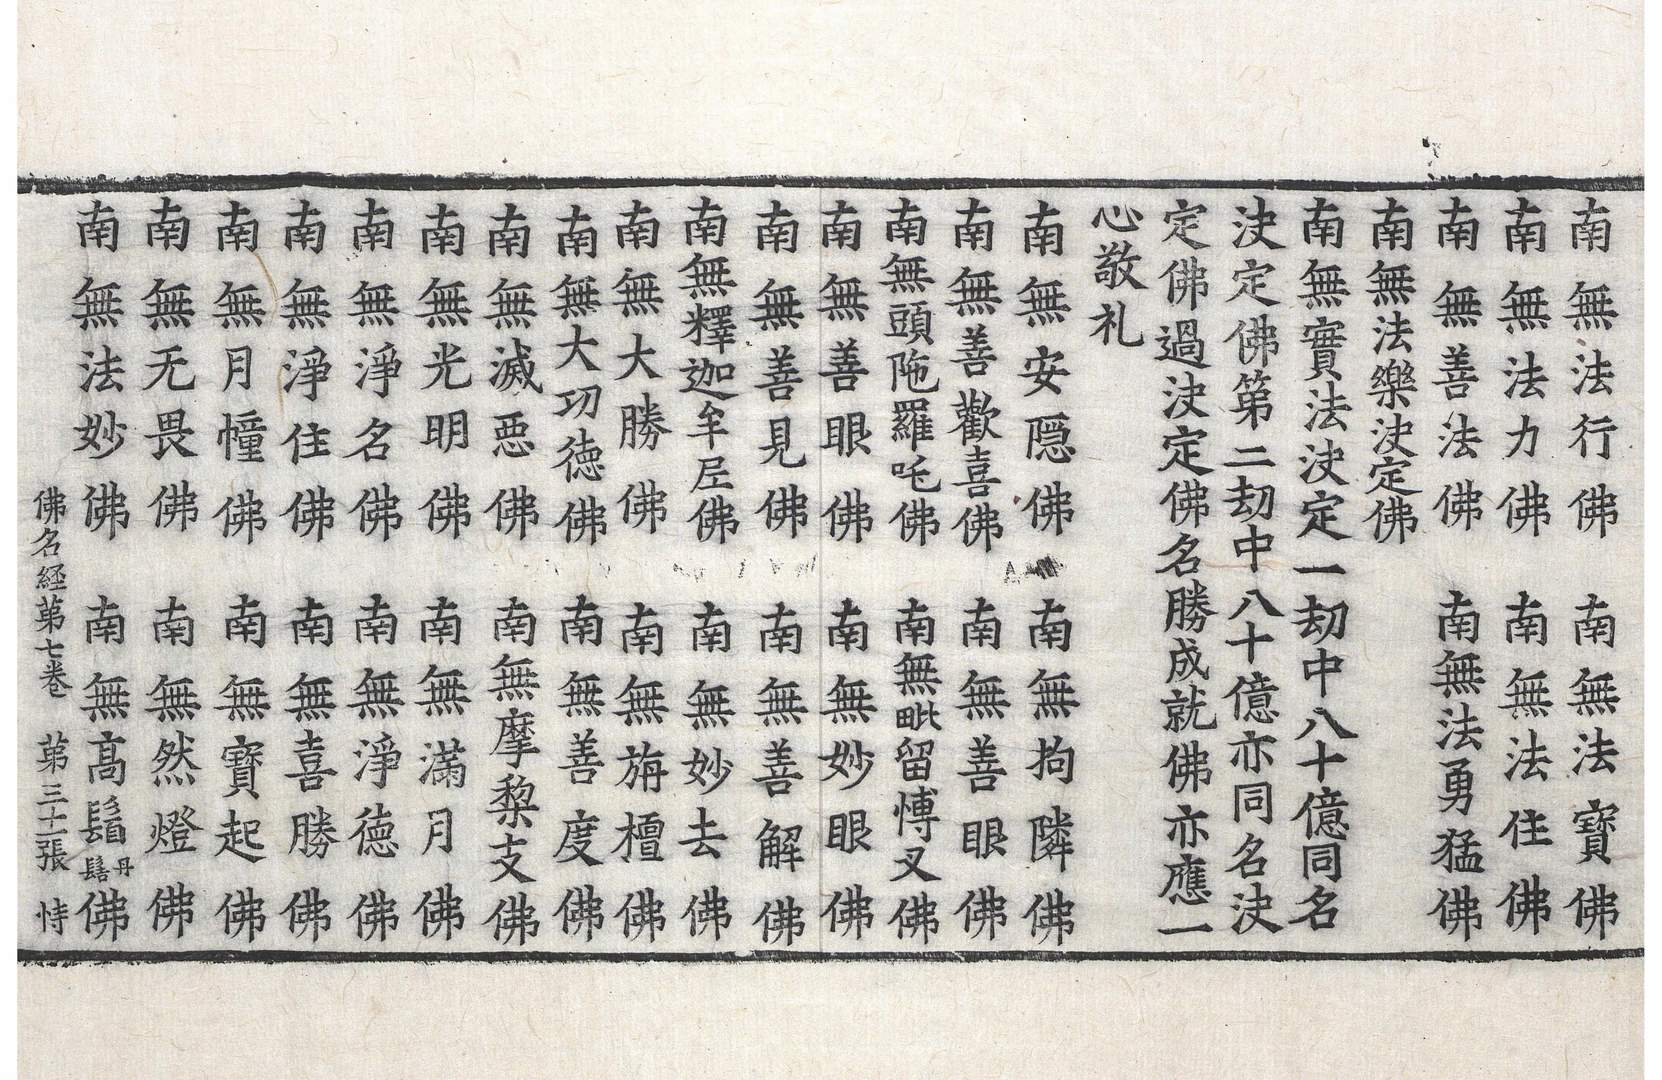 南無法行佛　南無法寶佛
南無法力佛　南無法住佛
南無善法佛　南無法勇猛佛
南無法樂決定佛
南無實法決定一劫中八十億同名
決定佛第二劫中八十億亦同名決
定佛過決定佛名勝成就佛亦應一
心敬礼
南無安隠佛　南無拘隣佛
南無善歡喜佛　南無善眼佛
南無頭陁羅吒佛　南無毗留愽叉佛
南無善眼佛　南無妙眼佛
南無善見佛　南無善解佛
南無釋迦牟𡰱佛　南無妙去佛
南無大勝佛　南無旃檀佛
南無大功德佛　南無善度佛
南無滅惡佛　南無摩黎支佛
南無光明佛　南無滿月佛
南無淨名佛　南無淨德佛
南無淨住佛　南無喜勝佛
南無月幢佛　南無寶起佛
南無无畏佛　南無然燈佛
南無法妙佛　南無高鬚丹䯻佛
佛名経第七卷　第三十二張　恃